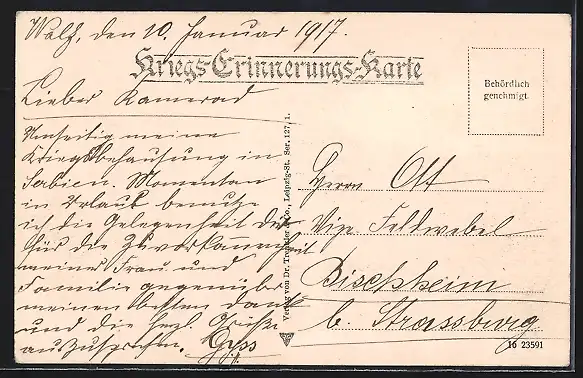 Walf, den 10. Januar 1917.
Kriegs-Erinnerungs-Karte
Behördlich
genehmigt.
Lieber Kamerad
Umseitig meine
Kriegsbehausung in
Serbien. Momentan
in Urlaub benutze
ich die Gelegenheit dir
für die Zuvorkommenheit
meiner Frau und
Familie gegenüber
meinen besten Dank
und die herzl. Grüsse
auszusprechen. Gyss
Verlag von Dr. Trenkler & Co., Leipzig-St. Ser. 127, 1.
Herrn Ott
Vize Feldwebel
Bischheim
b. Strassburg
16 23591